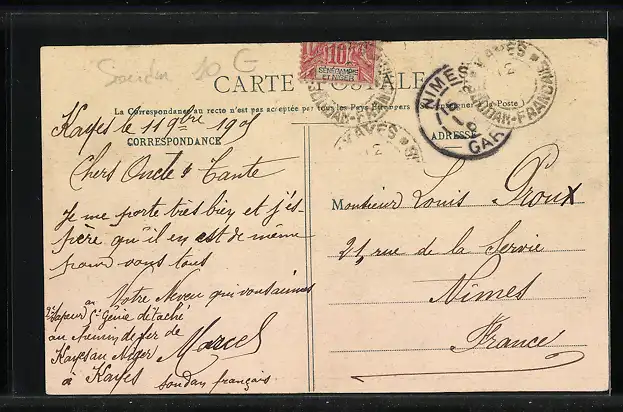 Soudan 10 G
CARTE POSTALE
10
SÉNÉGAMBIE
ET NIGER
KAYES
SOUDAN-FRANÇAIS
NIMES
GARD
(La Correspondance au recto n'est pas acceptée par tous les Pays Étrangers (Se renseigner à la Poste.)
Kayes le 11 9bre 1905
CORRESPONDANCE
ADRESSE
Chers Oncle & Tante
Je me porte très bien et j'es-
père qu'il en est de même
pour vous tous
Votre Neveu qui vous aime
Marcel
Sapeur au Cie Génie détaché
au chemin de fer de
Kayes au Niger
à Kayes
Soudan français
Monsieur Louis Proux
21, rue de la Servie
Nîmes
France